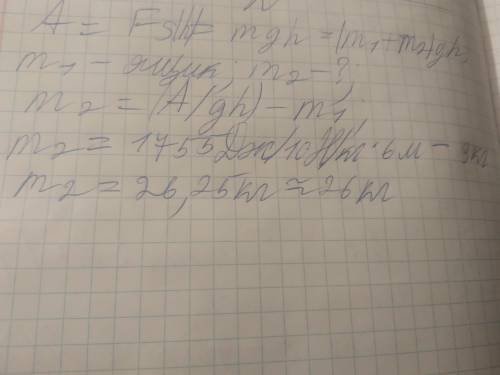 A = Fs = mgh = (m₁+m₂)gh,
m₁ – ящик; m₂ – ?;
m₂ = (A/gh) – m₁;
m₂ = 1755Дж/10Н/кг·6м – 3кг
m₂ = 26,25кг ≈ 26кг